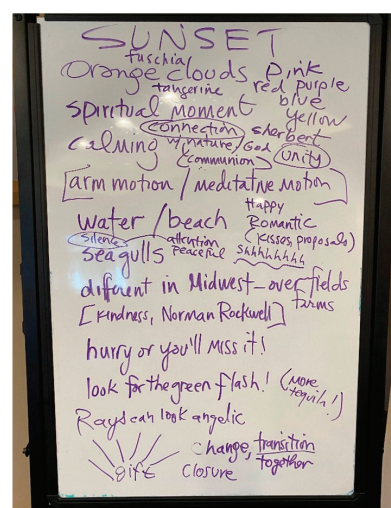 SUNSET
fuschia
Orange clouds Pink
tangerine red purple
blue
spiritual moment yellow
connection sherbert
Calming w/nature/God
(communion) Unity
[arm motion / meditative motion]
Happy
water / beach Romantic
(kisses, proposals)
Silence attention
seagulls Peaceful Shhhhhhhh
different in Midwest - over fields
farms
[Kindness, Norman Rockwell]
hurry or you'll miss it!
look for the green flash! (more tequila!)
Rays can look angelic
change, transition
gift closure together